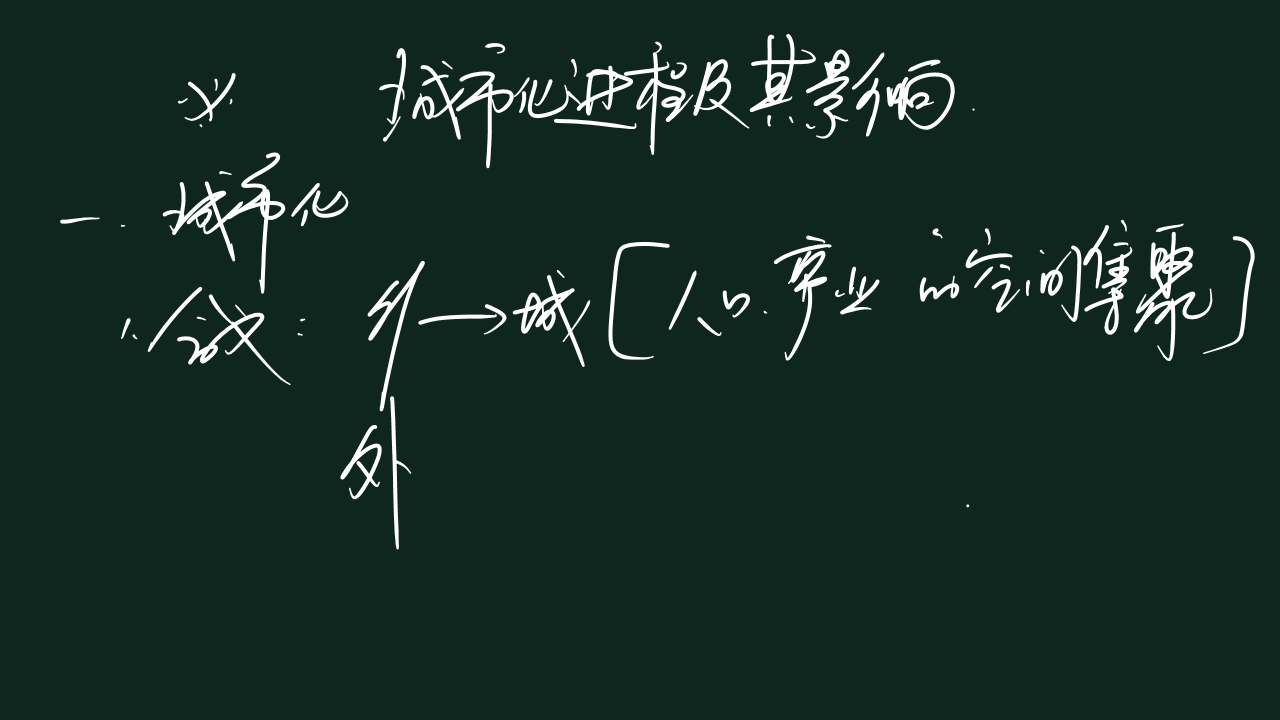 ※ 城市化进程及其影响
一. 城市化
1. 含义: 乡→城[人口.产业的空间集聚]
外